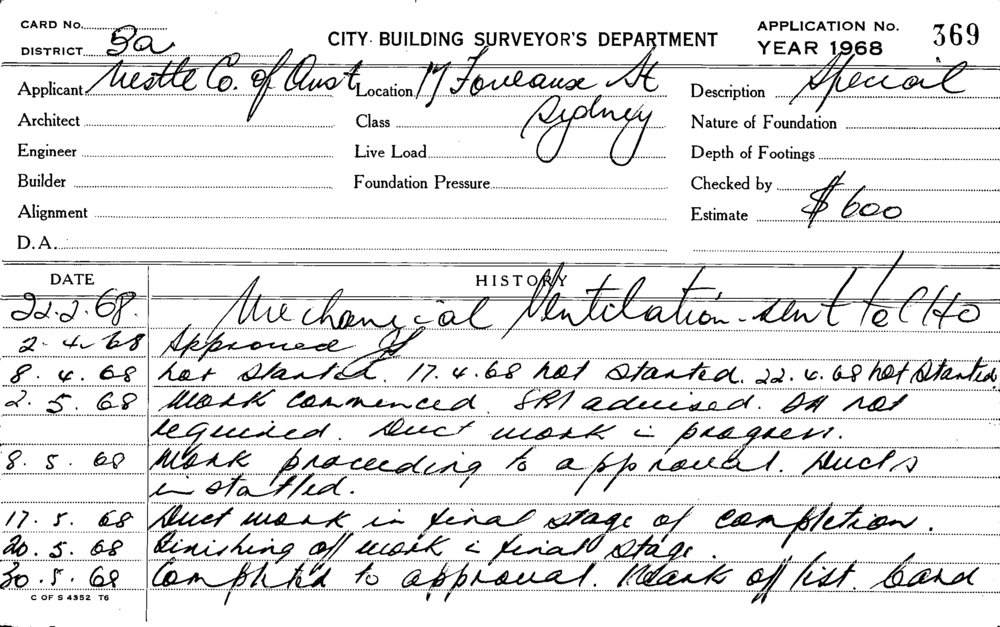 CARD No.
DISTRICT 3a
CITY BUILDING SURVEYOR'S DEPARTMENT
APPLICATION No. 369
YEAR 1968
Applicant Nestle Co. of Aust Location 17 Foveaux St Description Special
Architect Class Sydney Nature of Foundation
Engineer Live Load Depth of Footings
Builder Foundation Pressure Checked by
Alignment Estimate $600
D.A.
DATE HISTORY
22.2.68. Mechanical Ventilation - sent to CHO
2.4.68 Approved
8.4.68 Not started. 17.4.68 not started. 22.4.68 not started
2.5.68 Work commenced. SRI advised. not
required. Duct work in progress.
8.5.68 Work proceeding to approval. Ducts
installed.
17.5.68 Duct work in final stage of completion.
20.5.68 Finishing off work in final stage.
30.5.68 Completed to approval. Mark off list. Card
C OF S 4352 T6